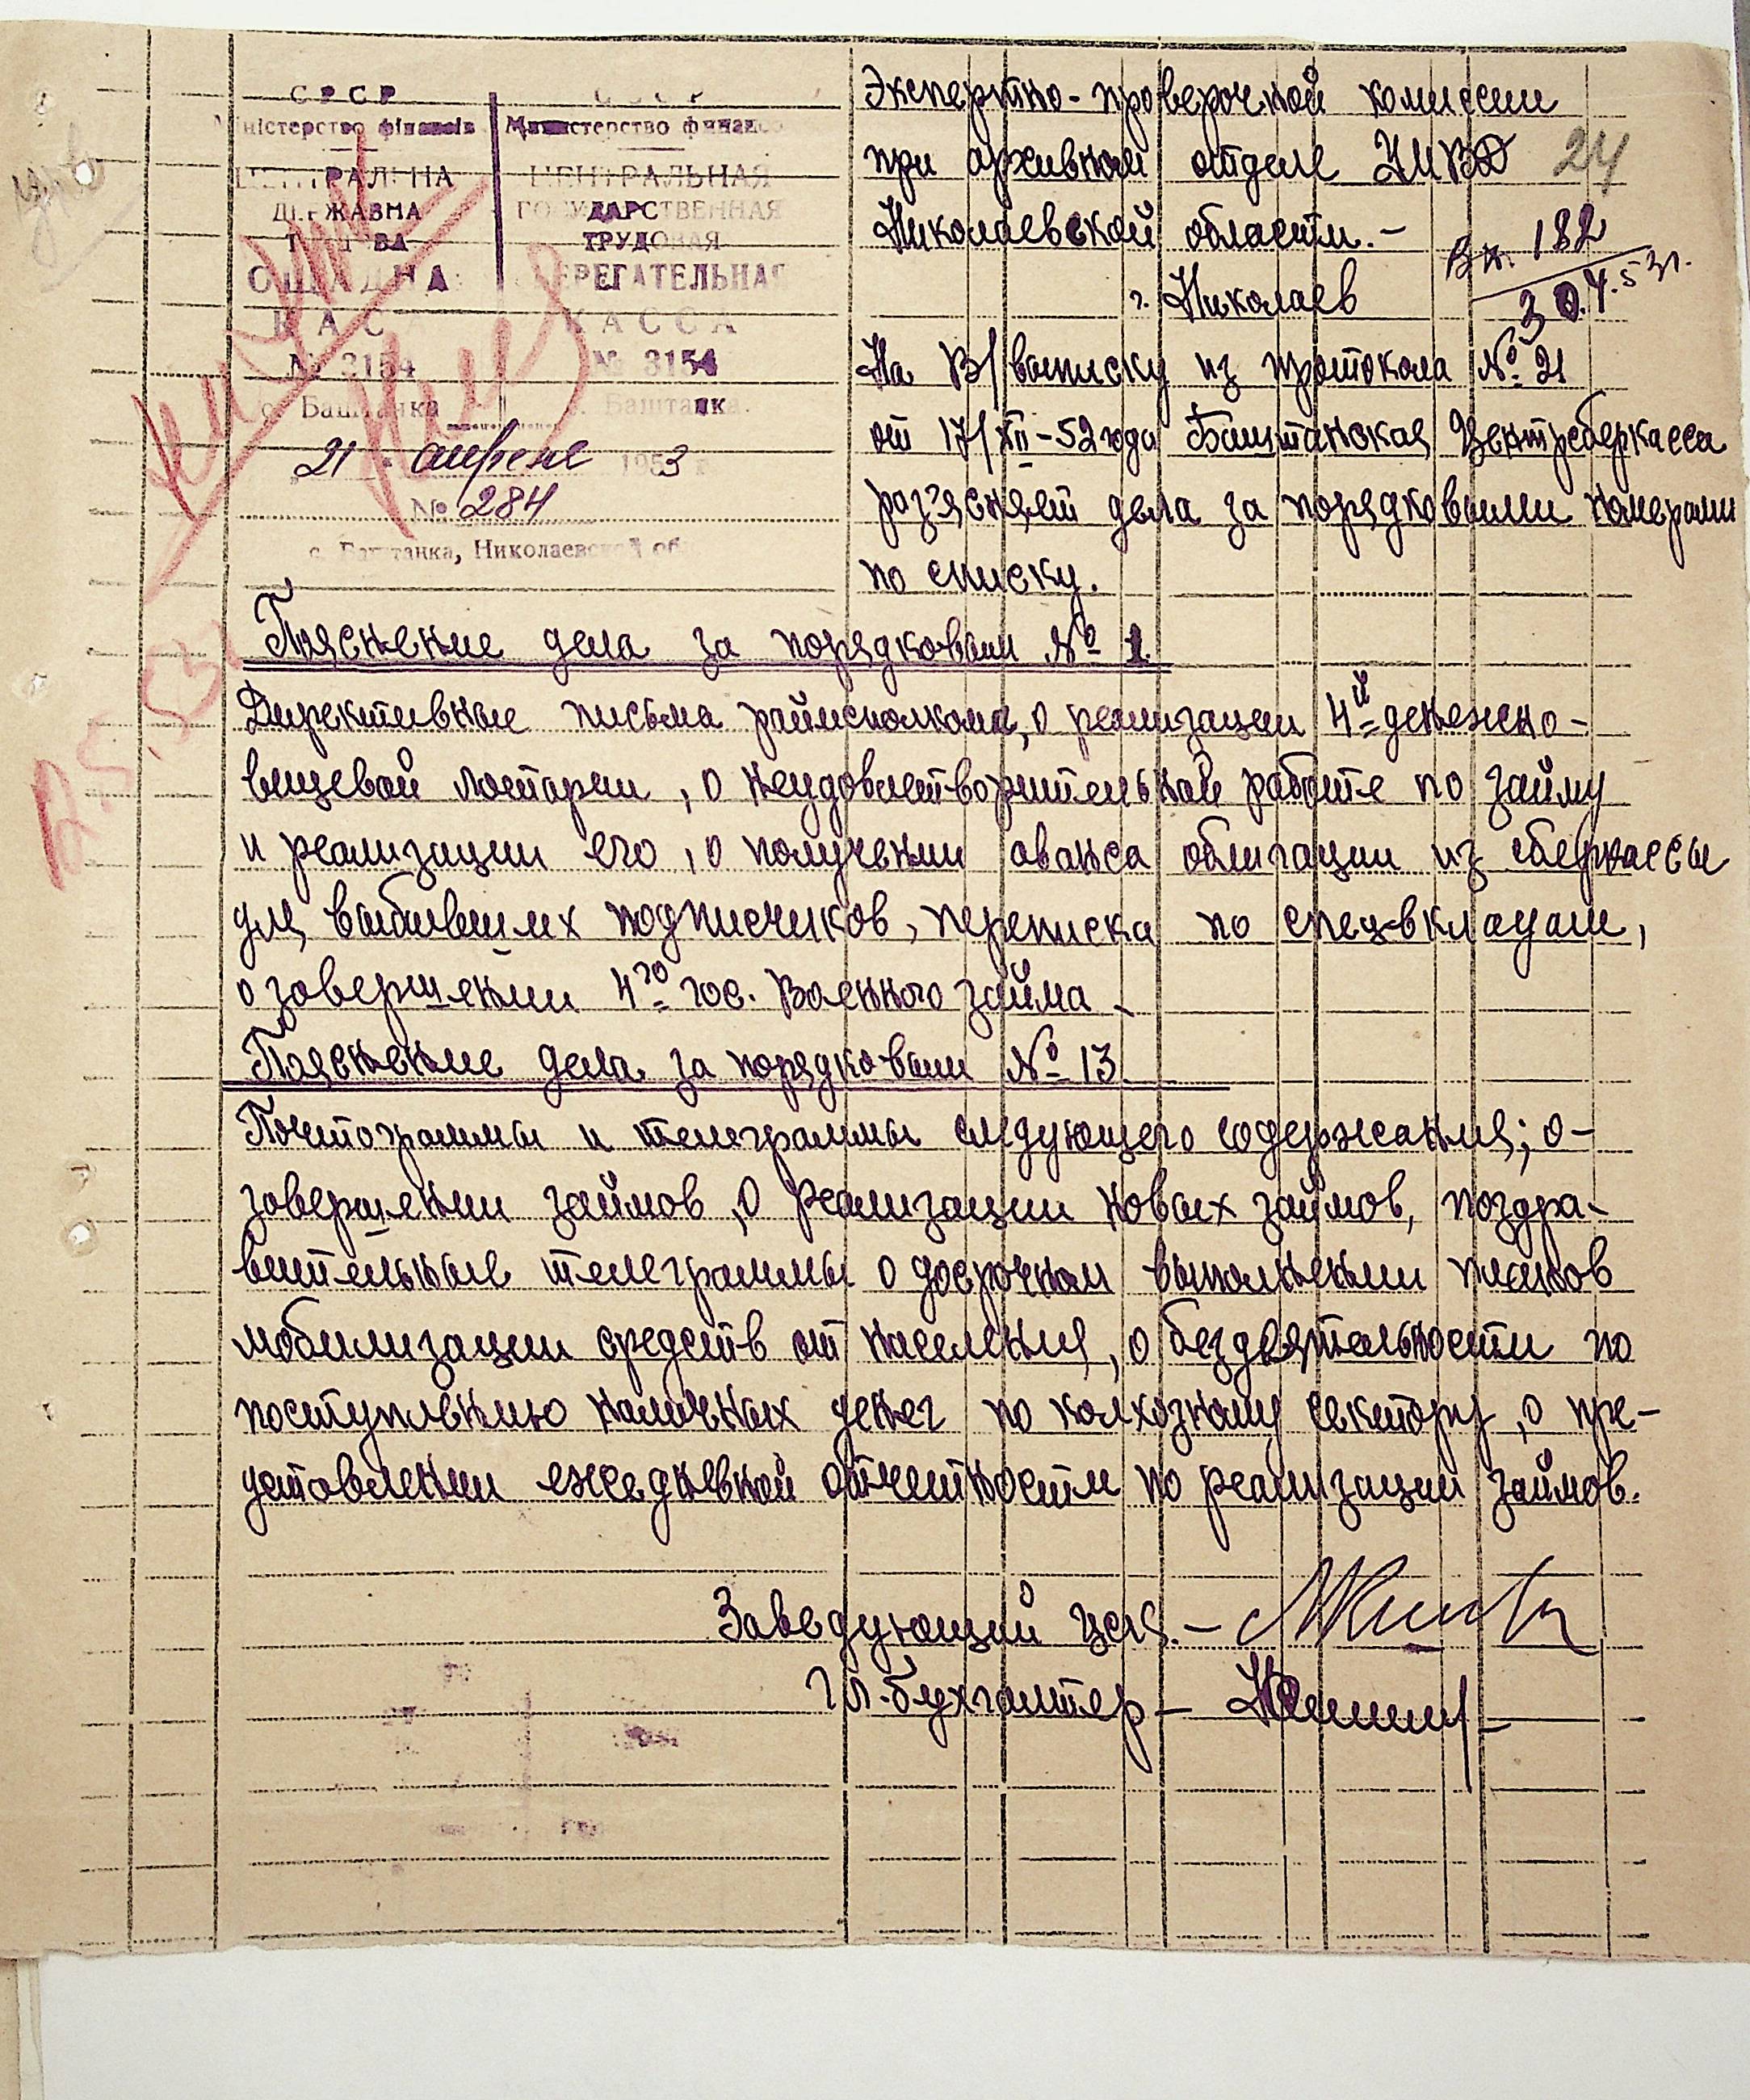 СРСР
Міністерство фінансів
ЦЕНТРАЛЬНА
ДЕРЖАВНА
ТРУДОВА
ОЩАДНА
КАСА
№ 3154
с. Баштанка
СССР
Министерство финансов
ЦЕНТРАЛЬНАЯ
ГОСУДАРСТВЕННАЯ
ТРУДОВАЯ
СБЕРЕГАТЕЛЬНАЯ
КАССА
№ 3154
с. Баштанка.
„21" апреля 1953 г.
№ 284
с. Баштанка, Николаевской обл.
Экспертно-проверочной комиссии
при архивном отделе УМВД
24
Николаевской области.-
Вх. 182
30.4.53г.
г. Николаев
На В/выписку из протокола № 21
от 17/XII-52 года Баштанская Центрсберкасса
раз'ясняет дела за порядковыми номерами
по списку.
Пояснение дела за порядковым № 1.
Директивные письма райисполкома, о реализации 4й денежно-
вещевой лотареи, о неудовлетворительной работе по займу
и реализации его, о получении аванса облигации из сберкассы
для выбывших подписчиков, переписка по спец-вкладам,
о завершении 4го гос. Военного займа -
Пояснение дела за порядковым № 13.
Почтограммы и телеграммы следующего содержания; о-
завершении займов, о реализации новых займов, поздра-
вительные телеграммы о досрочном выполнении планов
мобилизации средств от населения, о бездеятельности по
поступлению наличных денег по колхозному сектору, о пре-
уставлении ежедневной отчетности по реализации займов.
Заведующий цсц.-
Гл.-бухгалтер -
2.5.53.